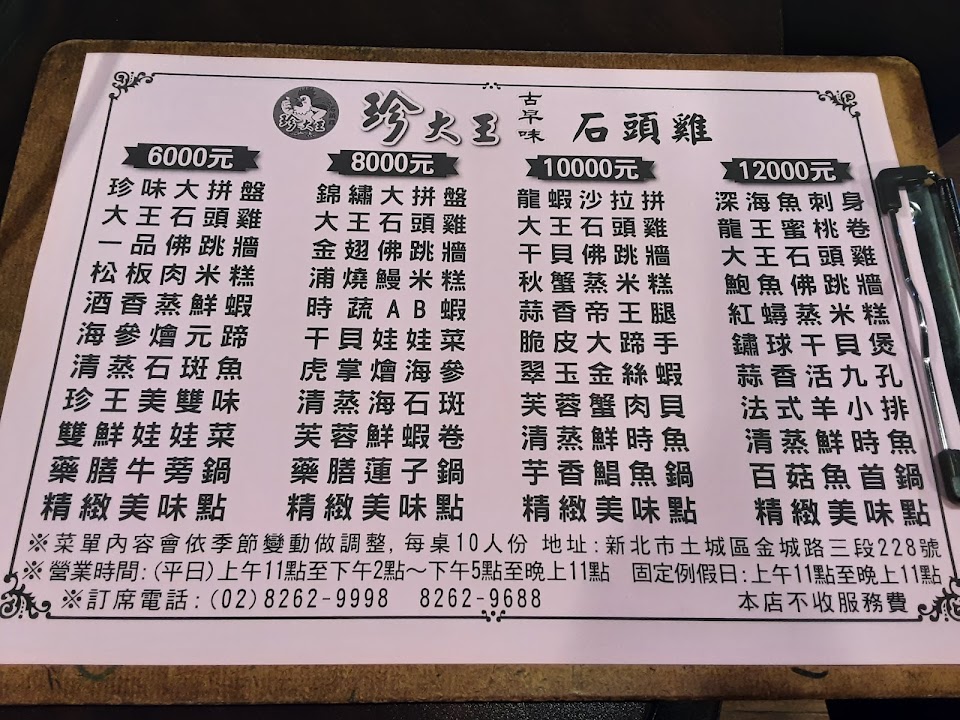 珍大王 古早味 石頭雞
珍大王
6000元
珍味大拼盤
大王石頭雞
一品佛跳牆
松板肉米糕
酒香蒸鮮蝦
海參燴元蹄
清蒸石斑魚
珍王美雙味
雙鮮娃娃菜
藥膳牛蒡鍋
精緻美味點
8000元
錦繡大拼盤
大王石頭雞
金翅佛跳牆
浦燒鰻米糕
時蔬AB蝦
干貝娃娃菜
虎掌燴海參
清蒸海石斑
芙蓉鮮蝦卷
藥膳蓮子鍋
精緻美味點
10000元
龍蝦沙拉拼
大王石頭雞
干貝佛跳牆
秋蟹蒸米糕
蒜香帝王腿
脆皮大蹄手
翠玉金絲蝦
芙蓉蟹肉貝
清蒸鮮時魚
芋香鯧魚鍋
精緻美味點
12000元
深海魚刺身
龍王蜜桃卷
大王石頭雞
鮑魚佛跳牆
紅蟳蒸米糕
鏽球干貝煲
蒜香活九孔
法式羊小排
清蒸鮮時魚
百菇魚首鍋
精緻美味點
※菜單內容會依季節變動做調整, 每桌10人份 地址:新北市土城區金城路三段228號
※營業時間:(平日)上午11點至下午2點～下午5點至晚上11點 固定例假日:上午11點至晚上11點
※訂席電話:(02)8262-9998 8262-9688 本店不收服務費